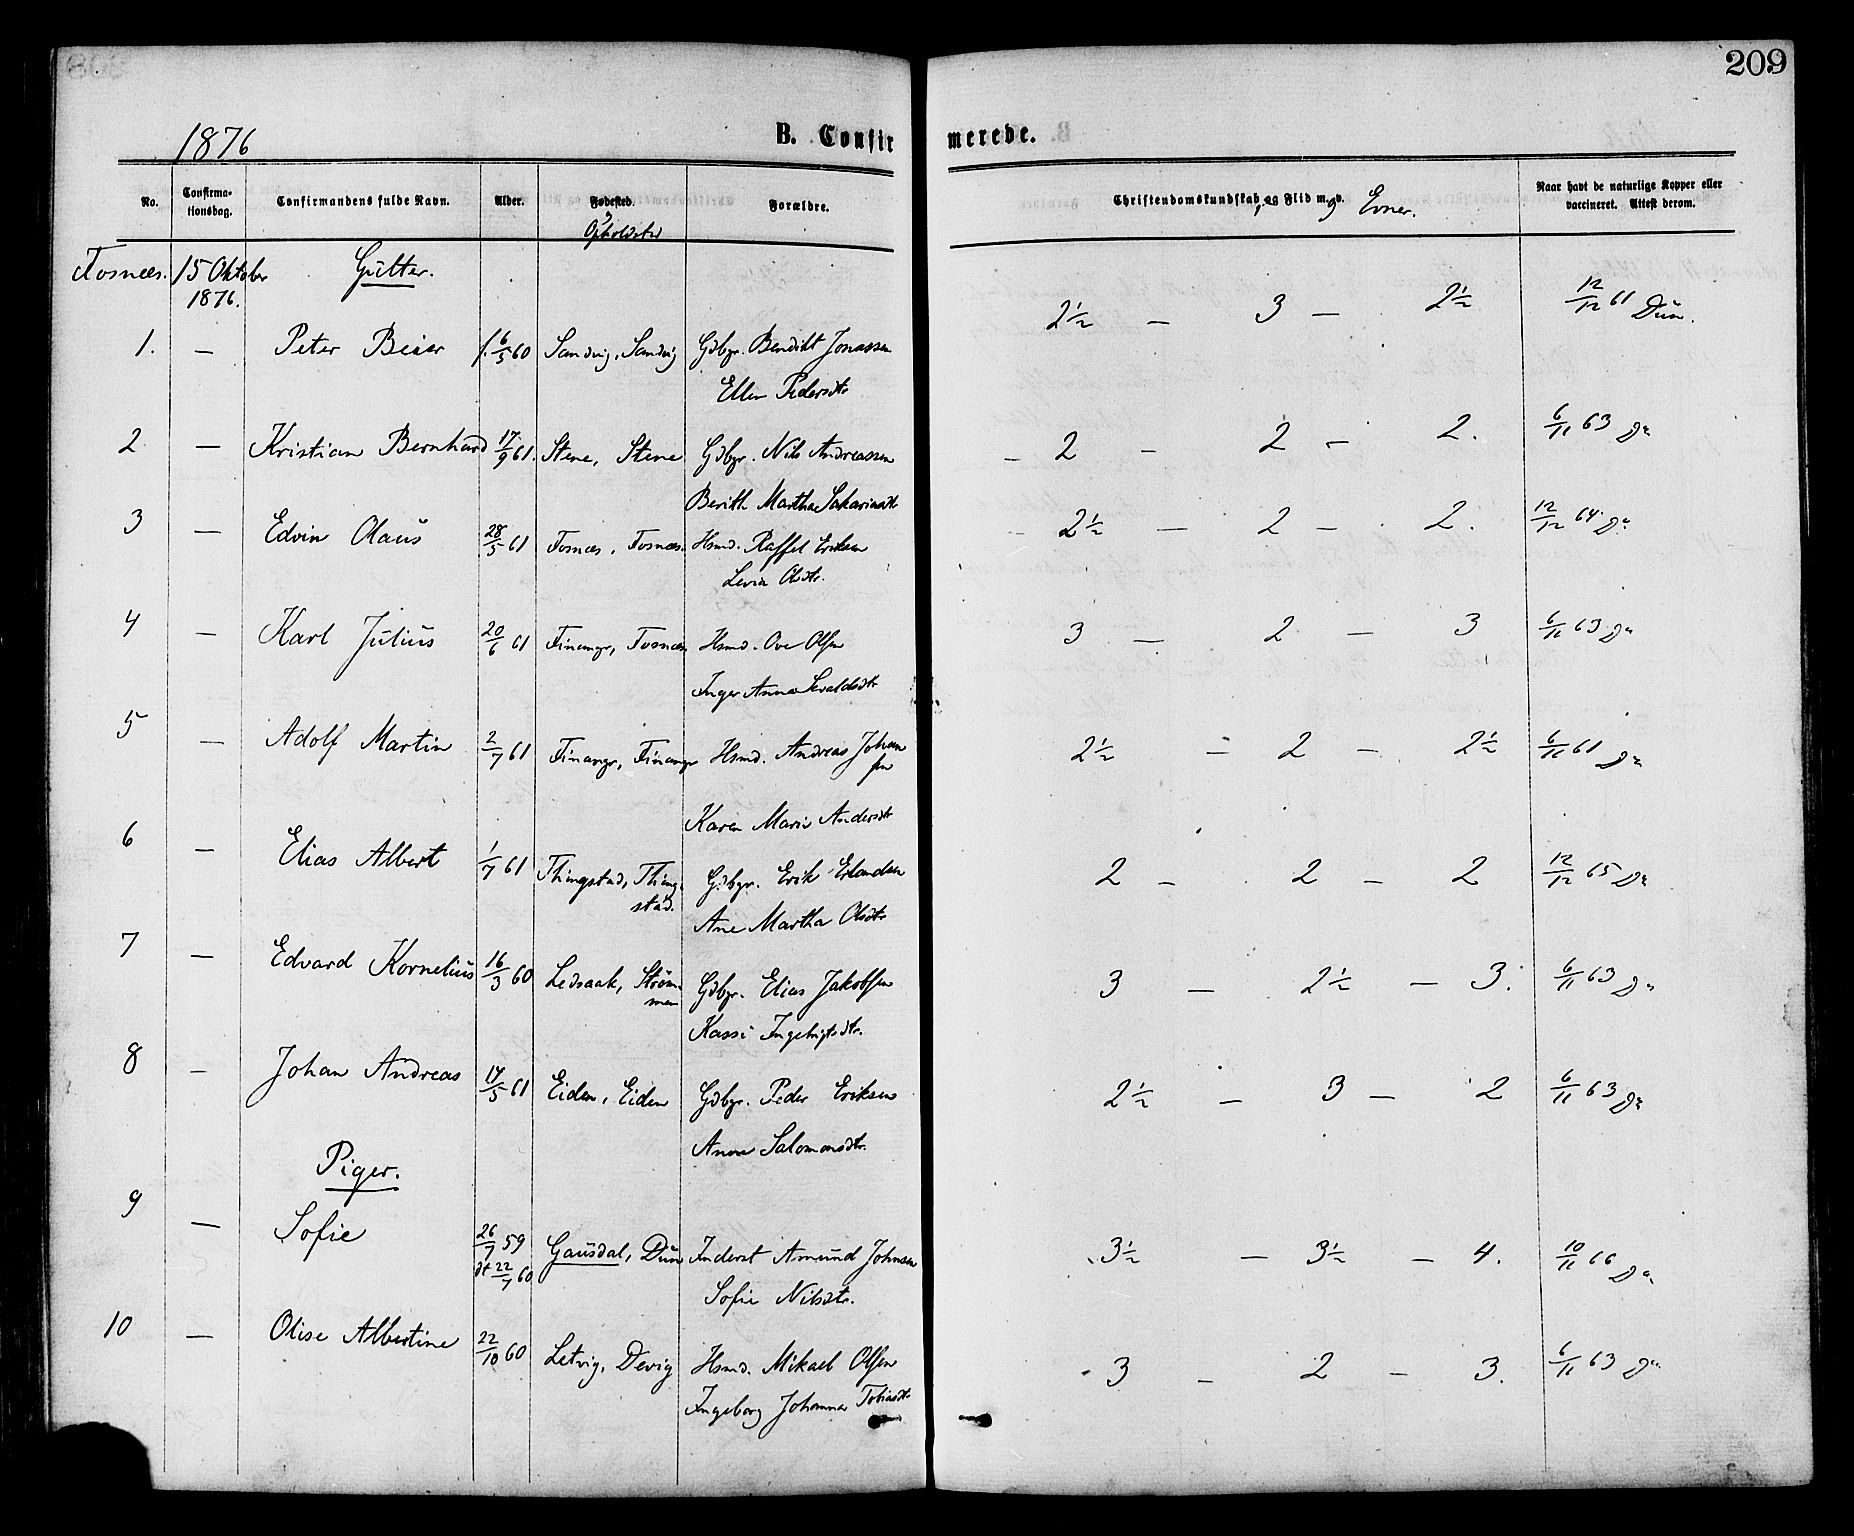 209
1876
B. Confirmerede.
No. Confirmationsdag. Confirmandens fulde Navn. Alder. Fødested. & Opholdsted Forældre. Christendomskundskab, og Flid m. v. og Evner. Naar havt de naturlige Kopper eller vaccineret. Attest derom.
Fosnæs. 15 Oktober 1876. Gutter.
1. — Peter Beier f. 6/5 60 Sandvig, Sandvig Gdbgr. Bendikt Jonassen 2½ — 3 — 2½ 12/12 61 Dün.
Ellen Pedersdtr
2 — Kristian Bernhard 17/9 61. Stene, Stene Gdbgr. Nils Andreassen 2 — 2 — 2. 6/11 63 Do
Berith Martha Sakariasdtr
3 — Edvin Olaüs 28/5 61 Fosnæs, Fosnæs. Hsmd. Raffel Eriksen 2½ — 2 — 2. 12/12 64 Do
Olsdtr.
4 — Karl Jülius 20/6 61 Finangr, Fosnæs Hsmd. Ove Olsen 3 — 2 — 3 6/11 63 Do
Inger Anna
5 — Adolf Martin 2/7 61 Finangr, Finangr Hsmd. Andreas Johansen 2½ — 2 — 2½ 6/11 61 Do
Karen Marie Andersdtr
6 — Elias Albert 1/7 61 Thingstad, Thingstad. Gdbgr. Erik Erlandsen 2 — 2 — 2 12/12 65 Do
Ane Martha Olsdtr
7 — Edvard Korneliüs 16/3 60 Ledsaak, Strømmen Gdbgr. Elias Jakobsen 3 — 2½ — 3. 6/11 63 Do
Kassi Ingebrigtsdtr.
8 — Johan Andreas 14/5 61 Eiden, Eiden Gdbgr. Peder Eriksen 2½ — 3 — 2 6/11 63 Do
Anne Salomonsdtr.
Piger.
9 — Sofie 26/7 59 dt 22/7 60 Gaüsdal, Dün Inderst Amünd Johnsen 3½ — 3½ — 4. 10/11 66 Do
Sofie Nilsdtr.
10 — Olise Albertine 22/10 60 Letvig, Devig Hsmd. Mikael Olsen 3 — 2 — 3. 6/11 63 Do
Ingeborg Johanna Tobiasdtr